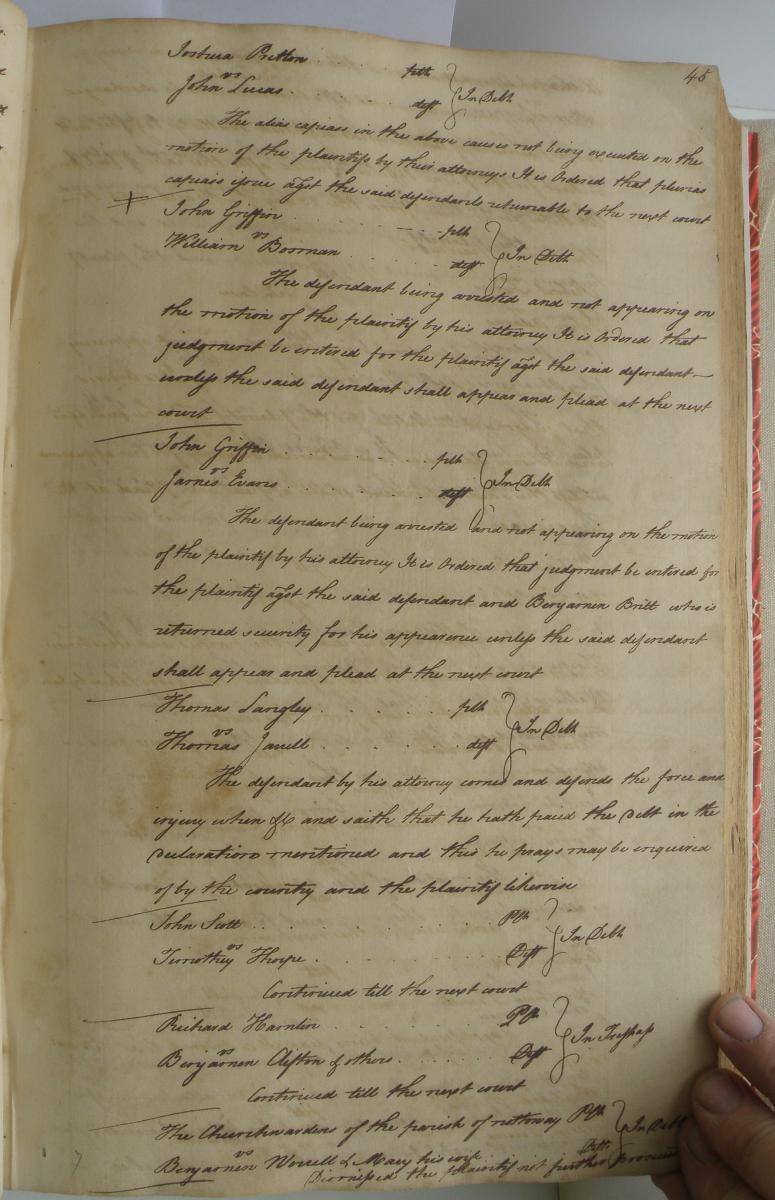 45
Joshua Pretlow . . . . plt
vs } In Debt
John Lucas . . . . deft
The alias capias in the above causes not being executed on the
motion of the plaintifs by their attorneys It is Ordered that plurias
capiass issue agst the said defendants returnable to the next court
John Griffin . . . . plt
vs } In Debt
William Boorman . . . . deft
The defendant being arrested and not appearing on
the motion of the plaintif by his attorney It is Ordered that
judgment be entered for the plaintif agst the said defendant
unless the said defendant shall appear and plead at the next
court
John Griffin . . . . plt
vs } In Debt
James Evans . . . . deft
The defendant being arrested and not appearing on the motion
of the plaintif by his attorney It is Ordered that judgment be entered for
the plaintif agst the said defendant and Benjamen Britt who is
returned security for his appearence unless the said defendant
shall appear and plead at the next court
Thomas Langley . . . . plt
vs } In Debt
Thomas Jarrell . . . . deft
The defendant by his attorney comes and defends the force and
injury when &c and saith that he hath paid the Debt in the
Declaration mentioned and this he prays may be enquired
of by the country and the plaintif likewise
John Scott . . . . Plt
vs } In Debt
Timothey Thorpe . . . . Deft
Continued till the next court
Richard Hamlin . . . . Plt
vs } In Trespass
Benjamen Clifton & others . . . . Deft
Continued till the next court
The Churchwardens of the parish of nottoway Plt
vs } In Debt
Benjamen Worrell & Mary his wife Deft
Dismissed the plaintif not further